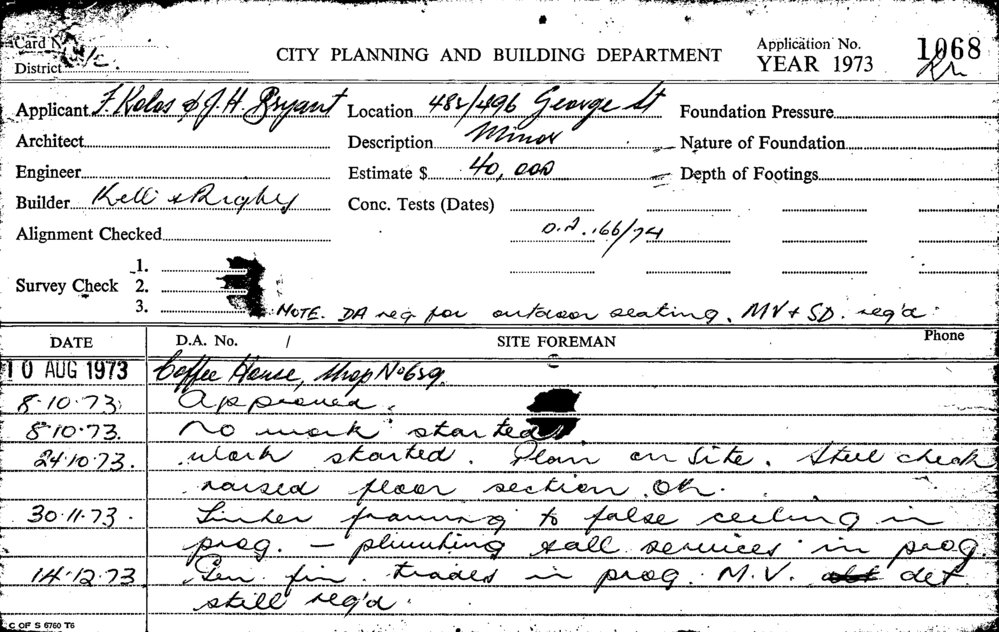 Card N
District
CITY PLANNING AND BUILDING DEPARTMENT
Application No.
YEAR 1973
1068
Applicant F. Kolos & J. H. Bryant
Location 482/496 George St
Foundation Pressure
Architect
Description Minor
Nature of Foundation
Engineer
Estimate $ 40,000
Depth of Footings
Builder Kell & Rigby
Conc. Tests (Dates)
Alignment Checked
D.A. 166/74
Survey Check
1.
2.
3.
NOTE. DA req for outdoor seating. MV + SD. req'd.
DATE D.A. No. / SITE FOREMAN Phone
10 AUG 1973 Coffee House, Shop No
8.10.73. Approved.
8.10.73. No work started.
24.10.73. Work started. Plan on Site. Steel check
raised floor section OK.
30.11.73. Timber framing to false ceiling in
prog. - plumbing & all services in prog
14.12.73 Gen fin. trades in prog. M.V. det
still req'd.
C OF S 6760 T6